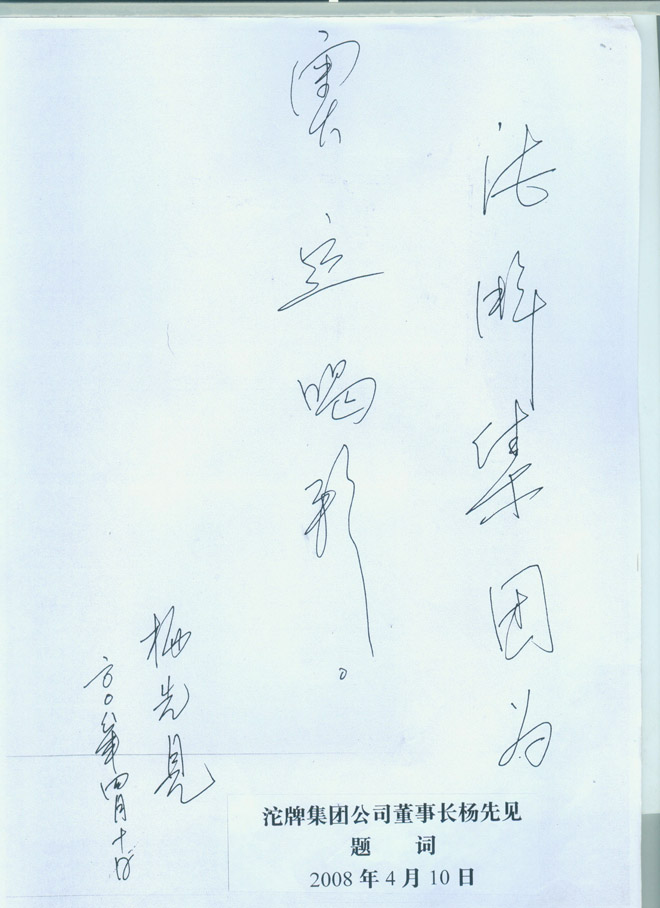 沱牌集团为
立喝彩。
杨先見
二〇〇八年四月十日
沱牌集团公司董事长杨先见
题 词
2008 年 4 月 10 日